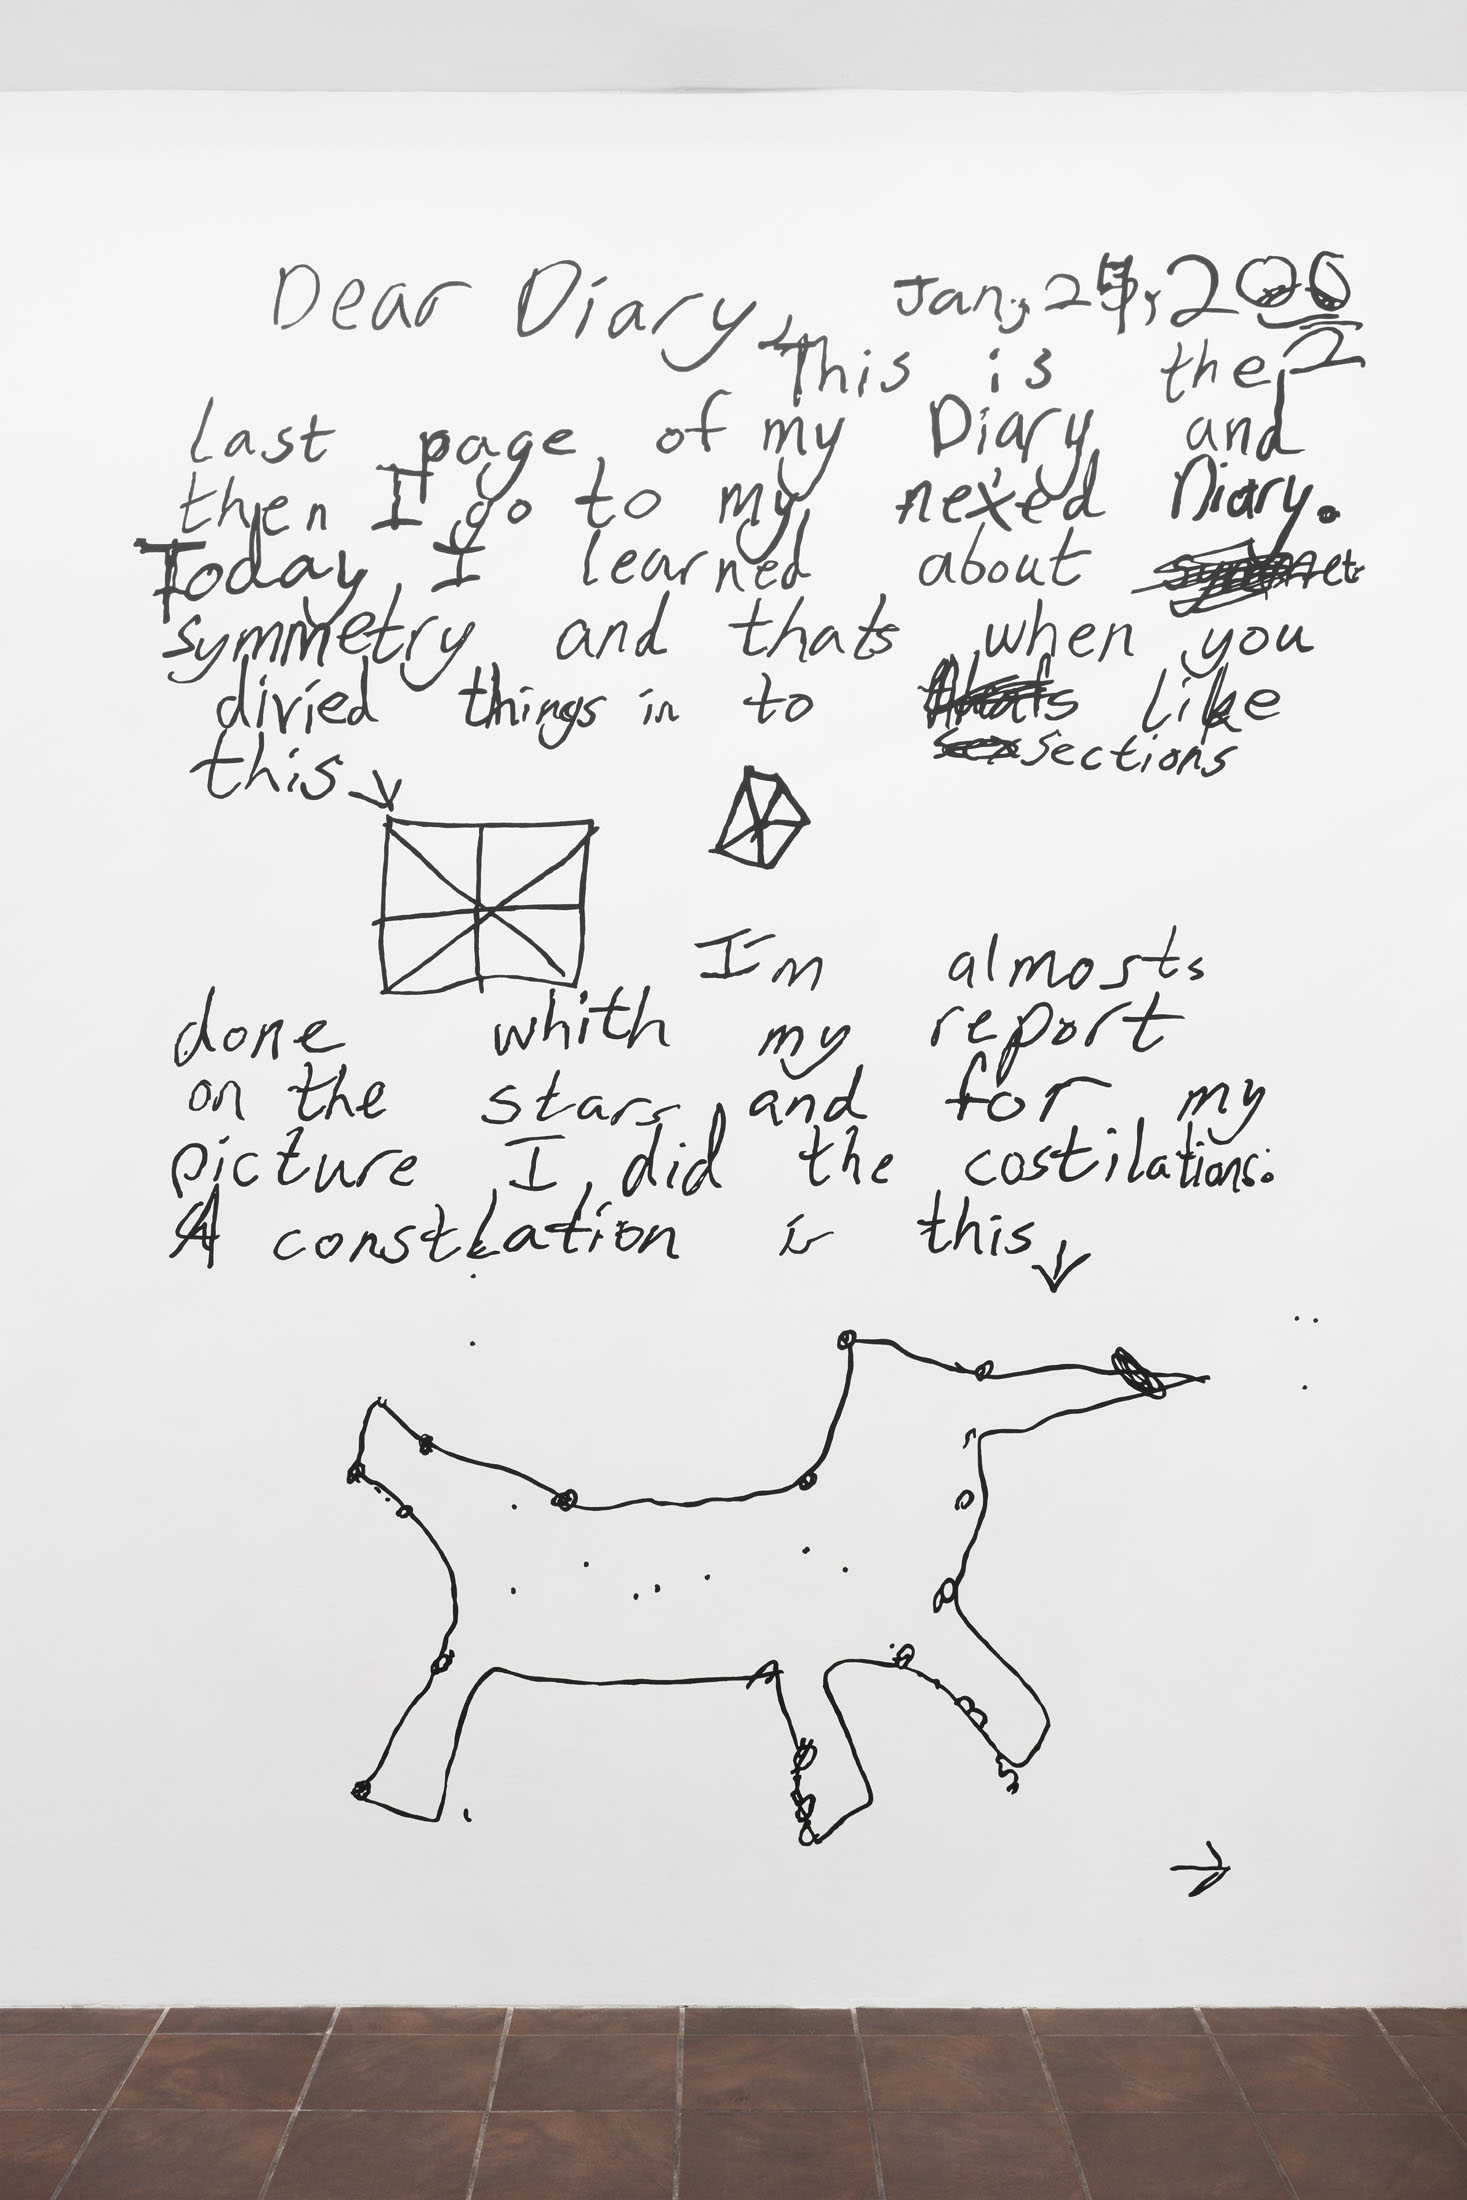 Dear Diary, Jan, 25, 2002
This is the
last page of my Diary and
then I go to my nexed Diary.
Today I learned about
symmetry and thats when you
divied things in to like
sections
this
I'm almosts
done whith my report
on the stars and for my
picture I did the costilations:
A constlation is this